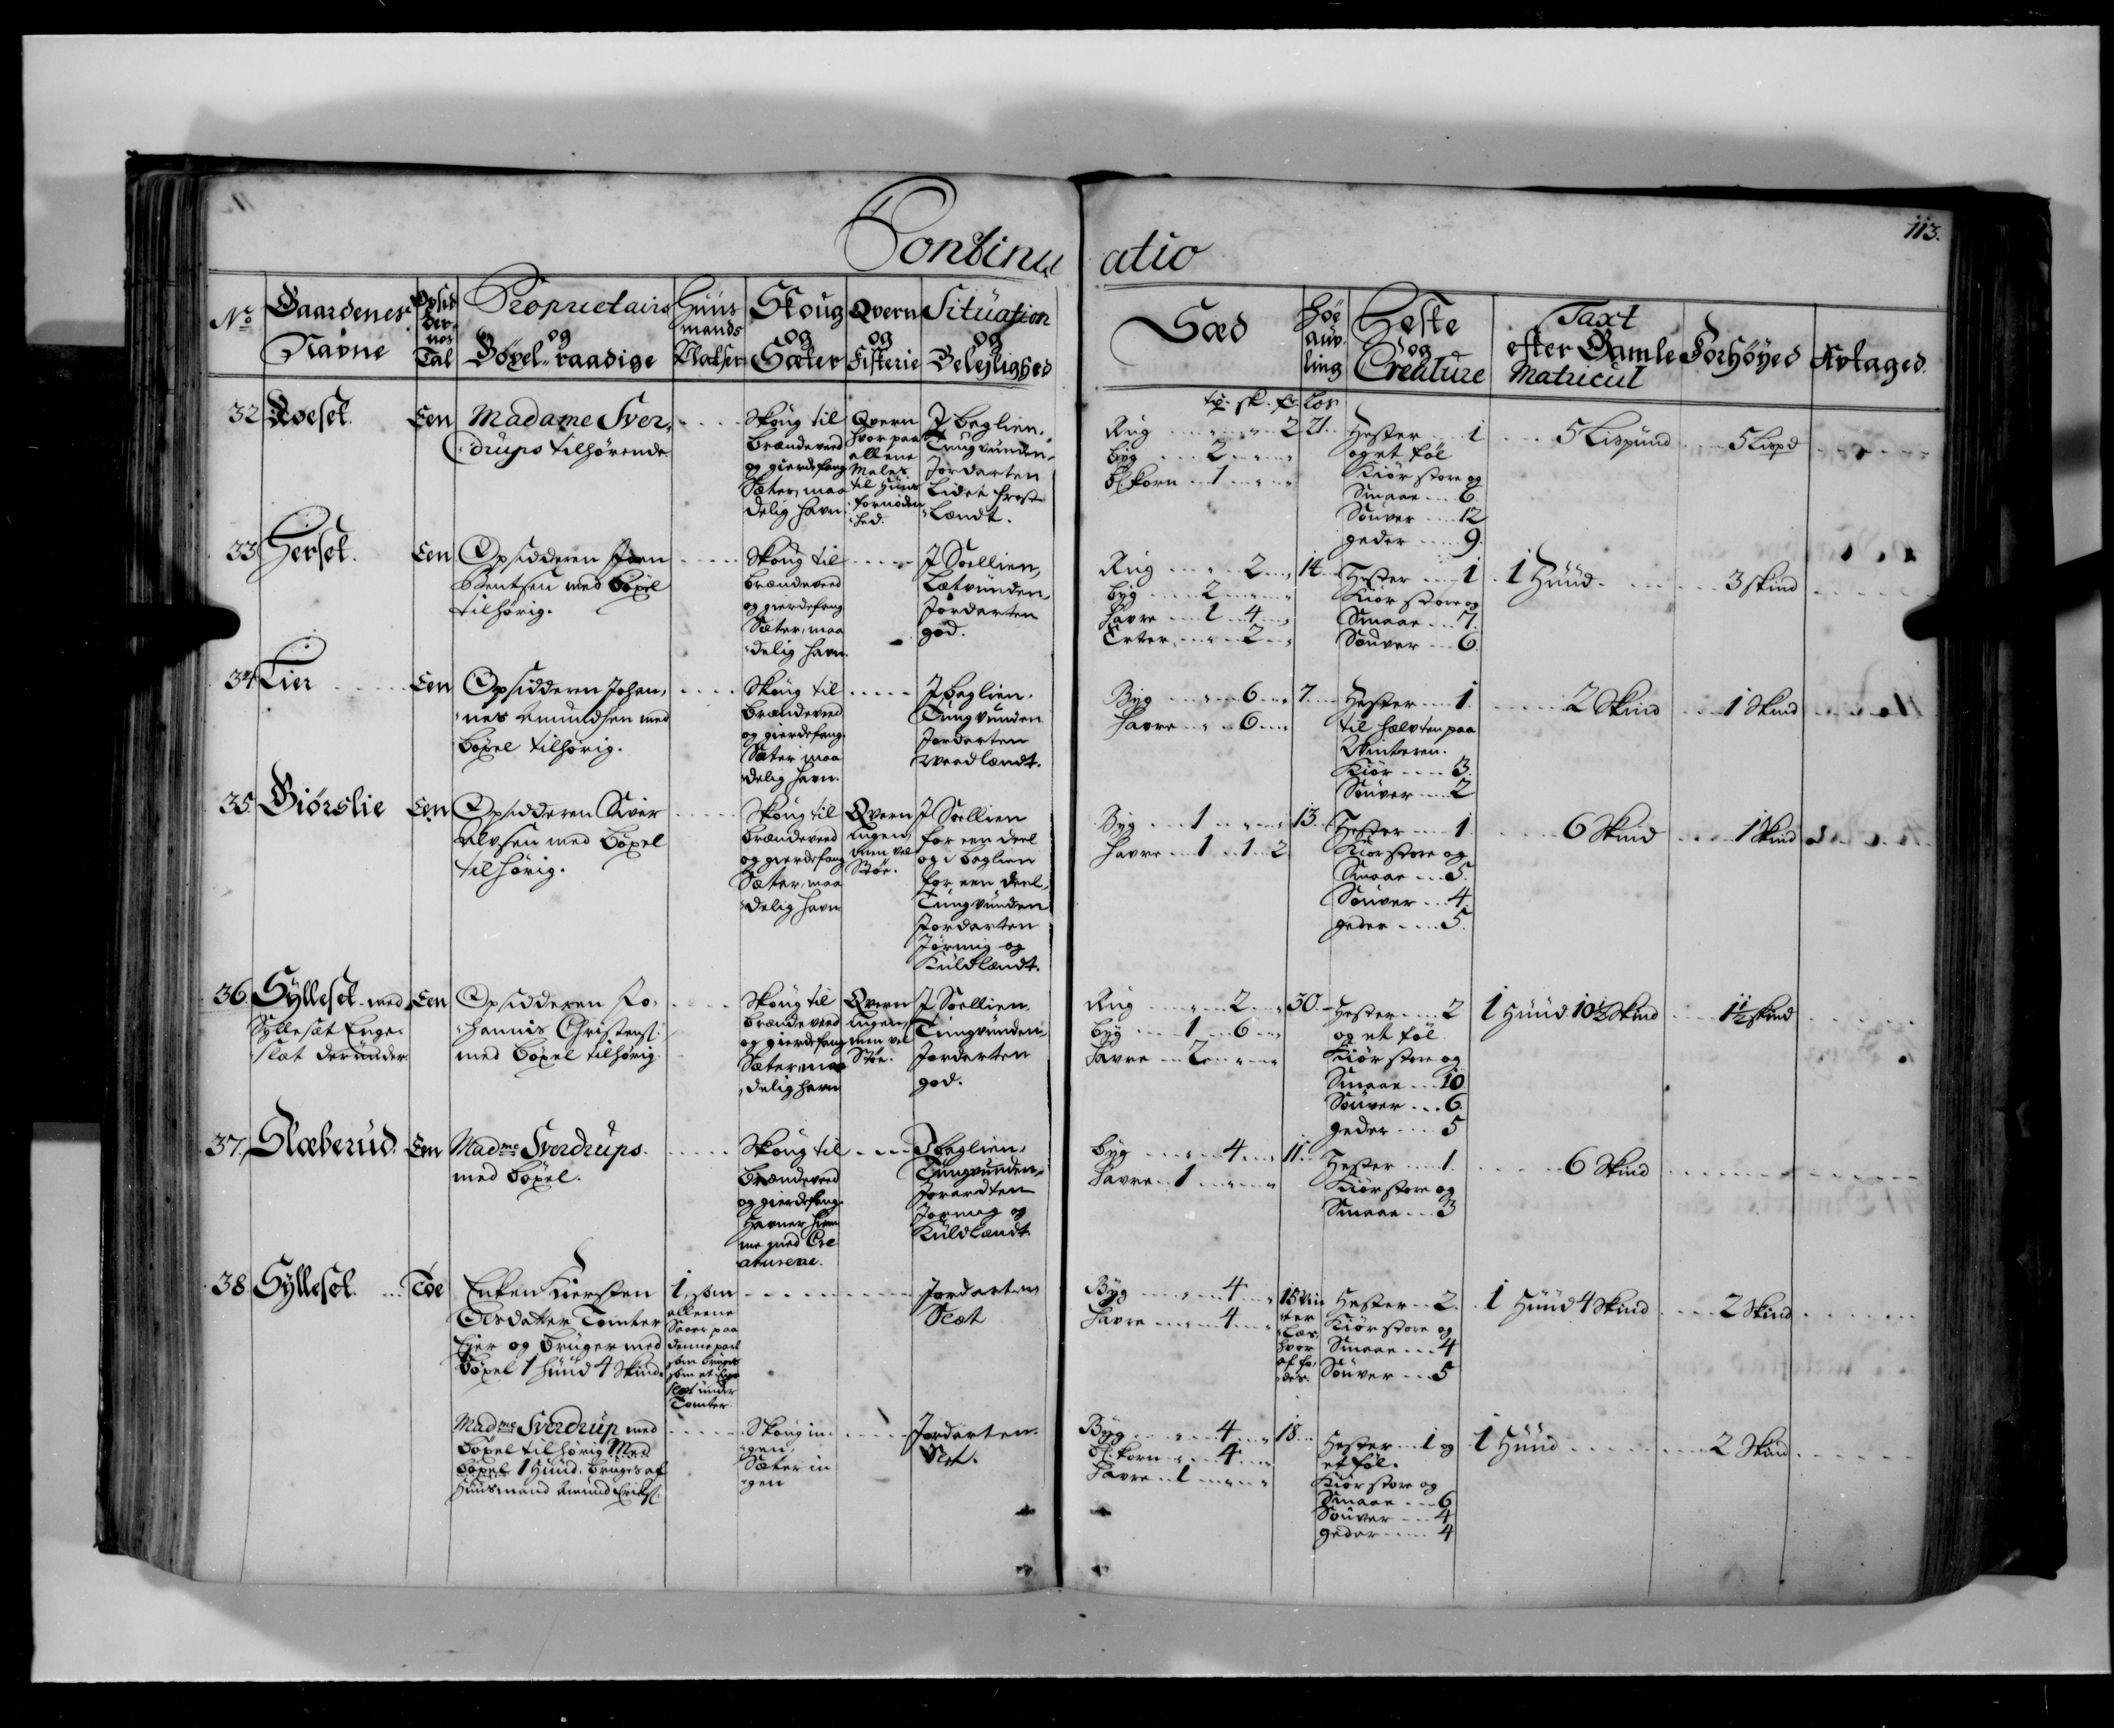 Continu atio
113.
No
Gaardenes
Navne
Opsid
der-
nes
Tal
Proprietairs
og
Böxel-raadige
Huus
mands
Pladser
Skoug
og
Sæter
Qvern
og
Fisterie
Situation
og
Belejlighed
Sæd
Høe
auv-
ling
Heste
og
Creature
Taxt
efter Gamle
Matricul
Forhøyed
Avtaged.
32
Een
Madame Sver-
drups tilhørende
Skoug til
brændeveed
og gierdefang
Sæter, maa
delig havn.
Qvern
hvor paa
allene
Males
til Huus
fornøden
hed.
J baglien.
Tungvunden-
Jordarten
Lidet frost
Lændt.
tø. sk. fr. Les
Rug 2 21.
Byg 2
Bl. korn 1
Hester 1
og et føl
Kiør store og
Smaae 6.
Souver 12
geder 9.
5 Lispund
5 Lispd
33
Herset.
Een
Opsidderen
Bentsen med Böxel
tilhørig.
Skoug til
brændeveed
og gierdefang
Sæter, maa
delig havn.
J Soellien,
Letvunden,
Jordarten
god.
Rug 2 14
Byg 2
Havre 1 4
Erter 2
Hester 1
Kiør store og
Smaae 7.
Souver 6.
1 Huud.
3 skind
34
Lier
Een
Opsidderen Johan-
nes Amundsen med
Böxel tilhørig.
Skoug til
brændeveed
og gierdefang.
Sæter maa
delig havn.
J baglien.
Tungvunden
Jordarten
veedlændt.
Byg 6 7.
Havre 6
Hester 1.
til helvten paa
Winteren.
Kiør 3.
Souver 2
2 Skind
1 Skind
35.
Giörslie
Een
Opsidderen Siver
Alvsen med Böxel
tilhørig.
Skoug til
brændeveed
og gierdefang
Sæter, maa
delig havn
Qvern
ingen,
men vel
Støe.
J Soellien
for een deel
og i baglien
for een deel,
Tungvunden
Jordarten
Jörmig og
Kuldlændt.
Byg 1 13.
Havre 1 1 2
Hester 1.
Kiør store og
Smaae 5.
Souver 4.
geder 5.
6 Skind
1 Skind
36.
Sylleset med
Syllesæt Enge-
slæt derunder
Een
Opsidderen Jo-
hannis Christens.
med Böxel tilhørig.
Skoug til
brændeveed
og gierdefang
Sæter, maa
delig havn
Qvern
ingen,
men vel
Støe.
J Soellien.
Tungvunden,
Jordarten
god.
Rug 2 30
Byg 1 6
Havre 2
Hester 2
og et føl
Kiør store og
Smaae 10
Souver 6.
geder 5
1 Huud 10½ Skind
1½ skind
37.
Slæberud.
Een
Madme Sverdrups.
med Böxel.
Skoug til
Brændeveed
og gierdefang.
Havner hiem
me med Cre
aturene.
J baglien,
Tungvunden,
Jorardten
Jörmig og
Kuldlændt
Byg 4 11.
Havre 1
Hester 1.
Kiør store og
Smaae 3
6 Skind
38
Sylleset.
Toe
Enken Kiersten
Olsdatter Tomter
Ejer og bruger med
Böxel 1 huud 4 Skind.
1, som
alleene
Saaer paa
denne part
som bruges
som et Enge
slæt under
Tomter.
Jordarten
Slæt
Byg 4
Havre 4
15 Vin
ter
læs,
hvor
af fo-
des.
Hester 2.
Kiør store og
Smaae 4
Souver 5
1 Huud 4 Skind
2 Skind
Madme Sverdrup med
Böxel tilhørig Med
Böxel 1 Huud, bruges af
Huusmand Amund Eriks.
Skoug in
gen,
Sæter in
gen
Jordarten
Slet.
Byg 4 18
Bl. korn 4
Havre 1
Hester 1 og
et føl.
Kiør store og
Smaae 6
Souver 4
geder 4
1 Huud
2 Skind